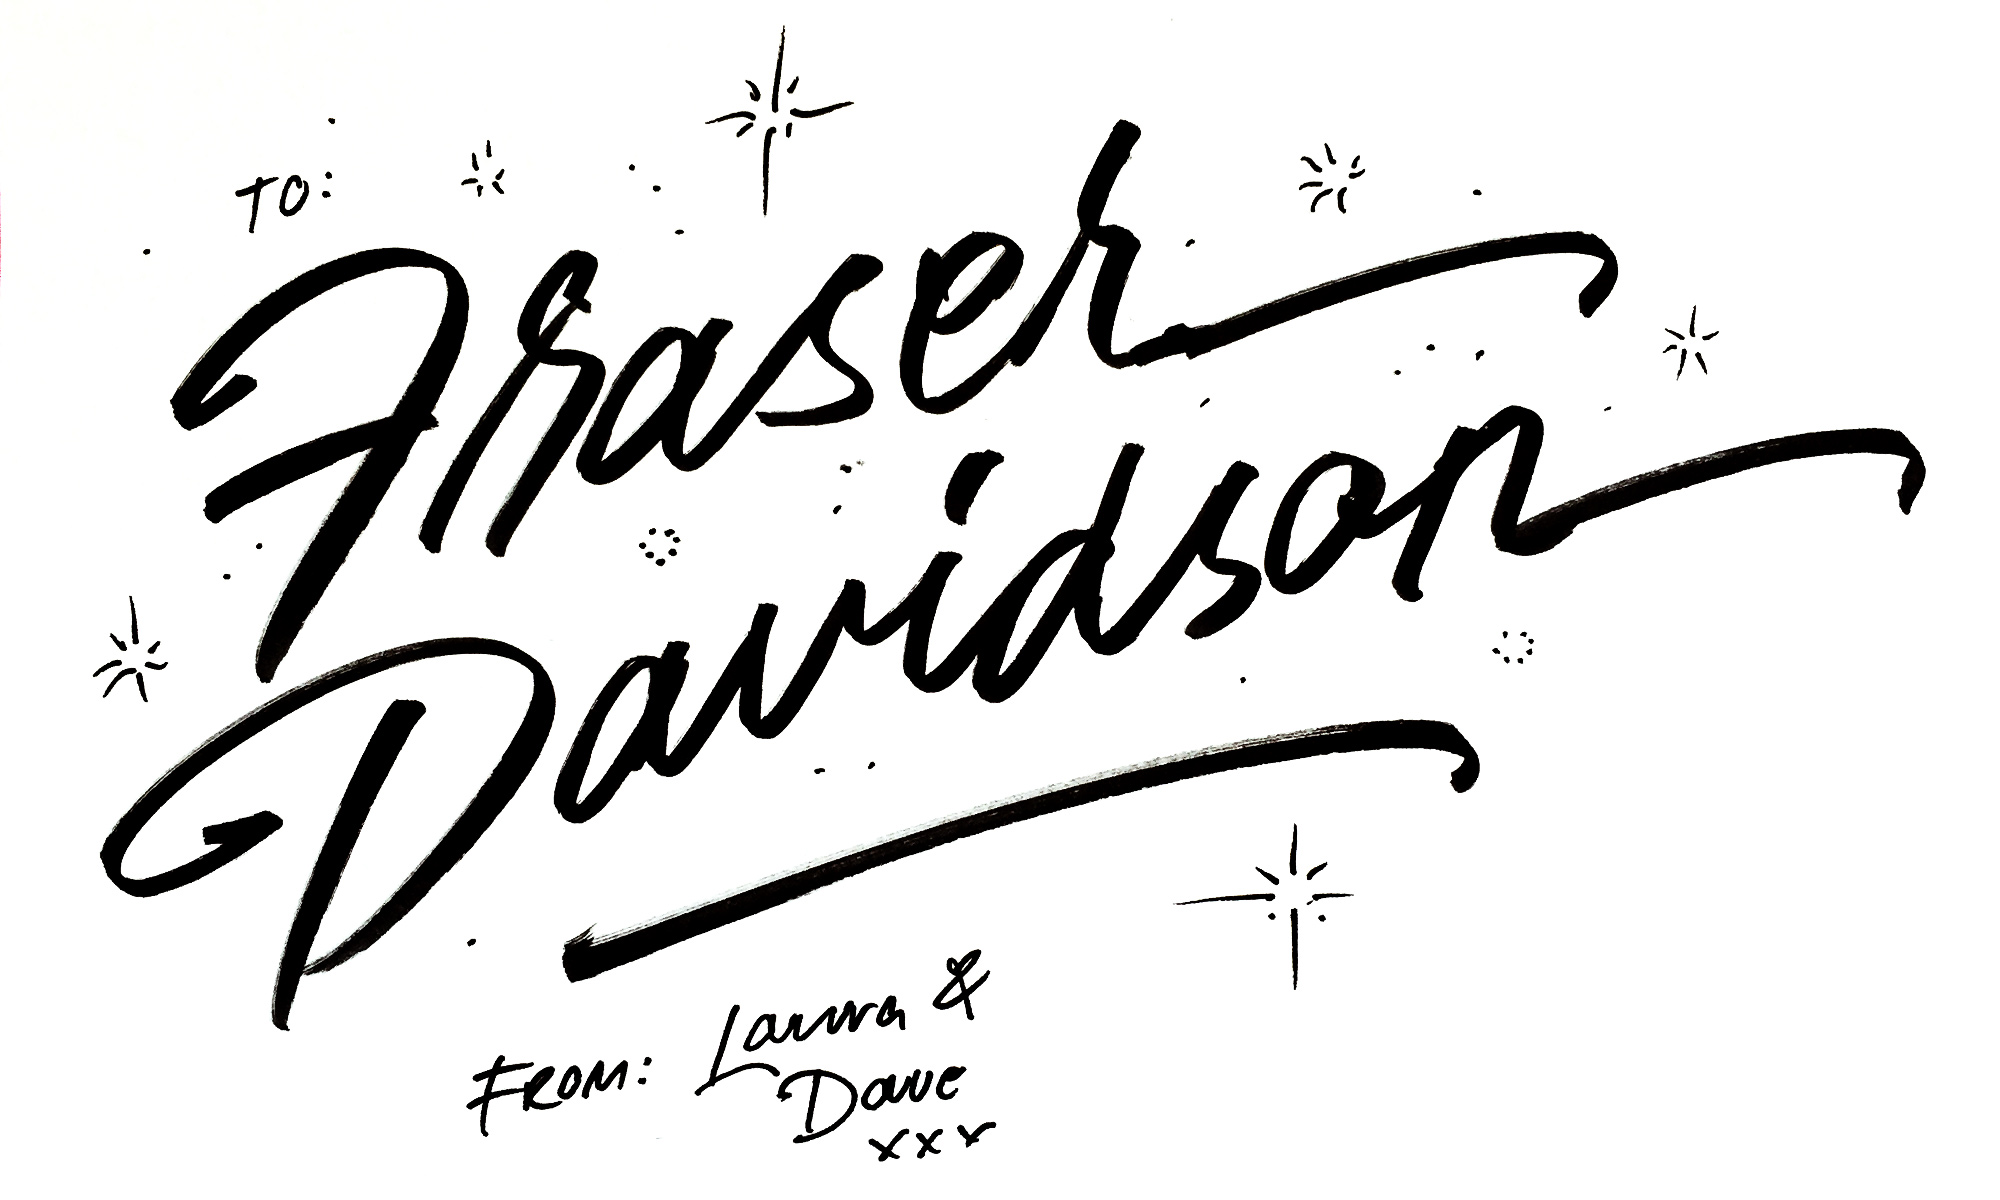 TO:
Fraser
Davidson
FROM: Laura &
Dave
xxx